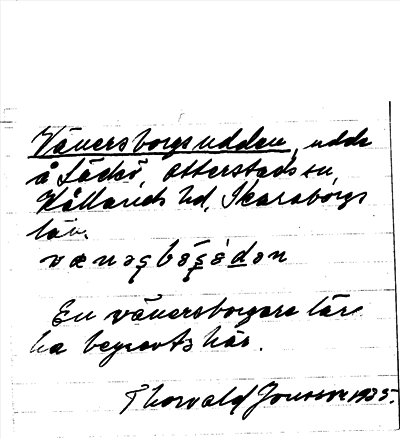 Vänersborgsudden, udde
å Läckö, Otterstads sn,
Kållands hd, Skaraborgs
län.
En vänersborgare lär
ha begravts här.
Thorvald Jonsson 1925.